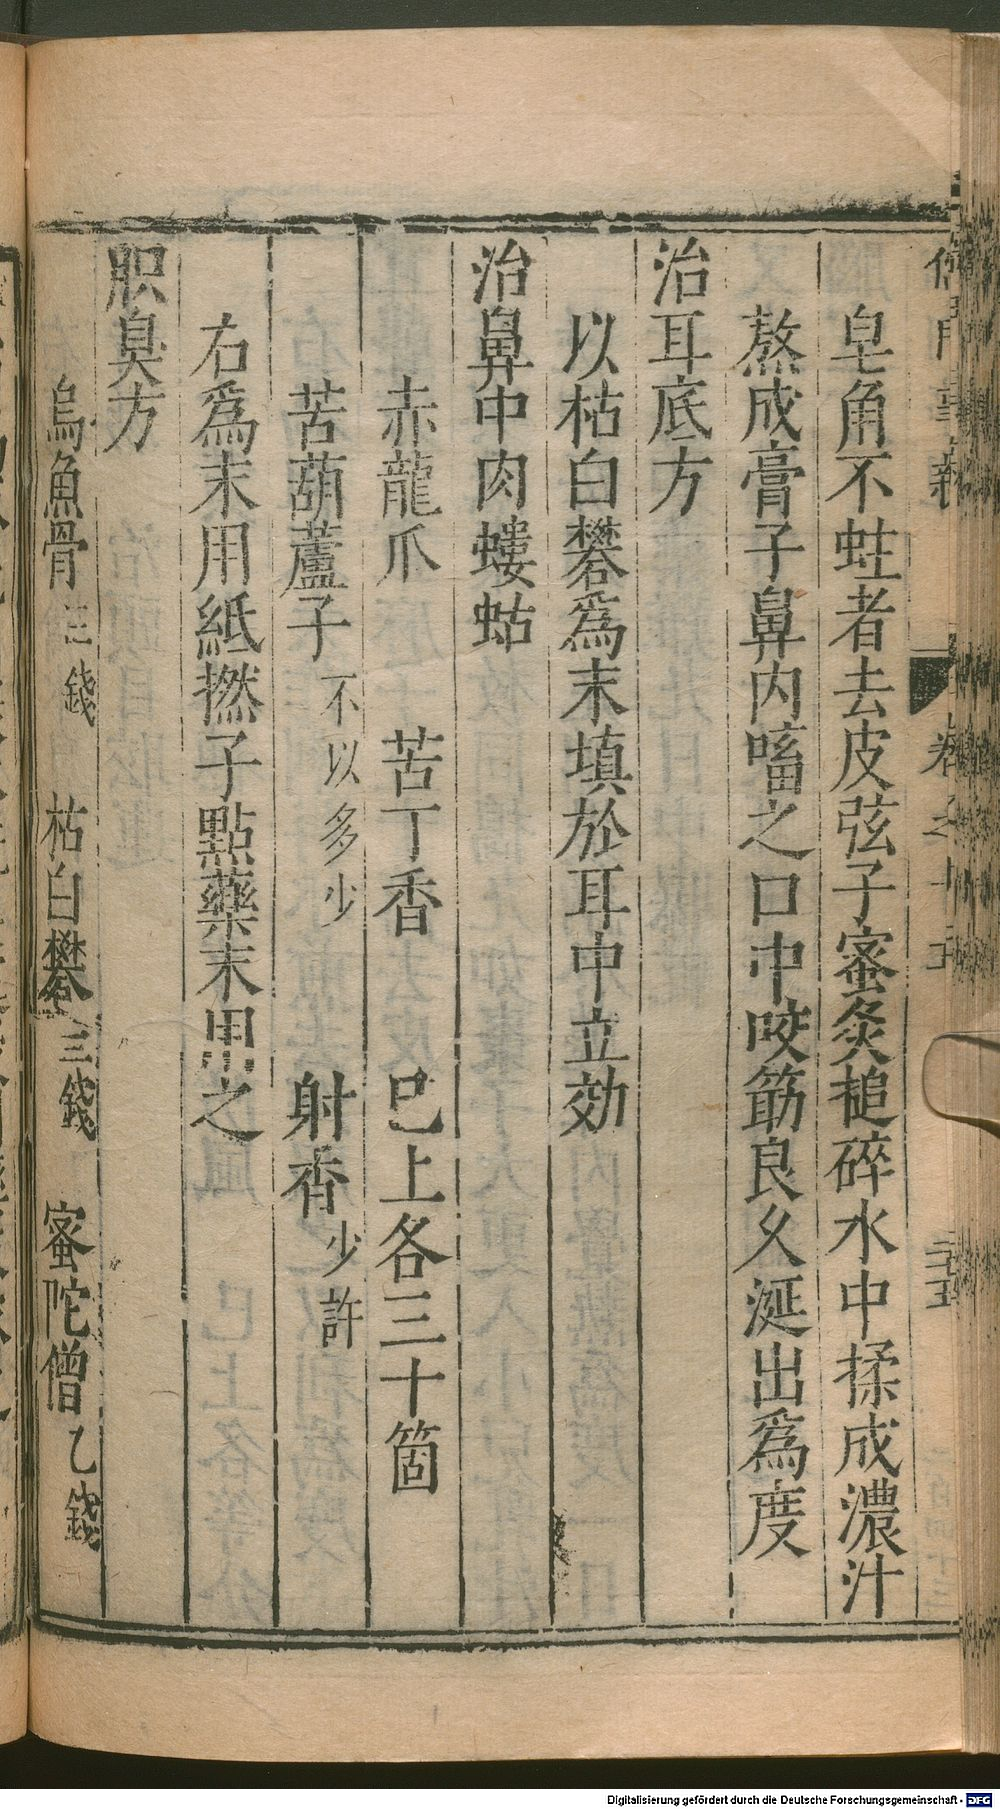 儒門事親
卷之十五
三五
皂角不蛀者去皮弦子蜜炙搥碎水中揉成濃汁
熬成膏子鼻內嗜之口中咬筯良久涎出爲度
治耳底方
以枯白礬爲末填於耳中立効
治鼻中肉螻蛄
赤龍爪 苦丁香 已上各三十箇
苦葫蘆子不以多少 射香少許
右爲末用紙撚子點藥末用之
胑臭方
烏魚骨三錢 枯白礬三錢 蜜陀僧乙錢
Digitalisierung gefördert durch die Deutsche Forschungsgemeinschaft - DFG